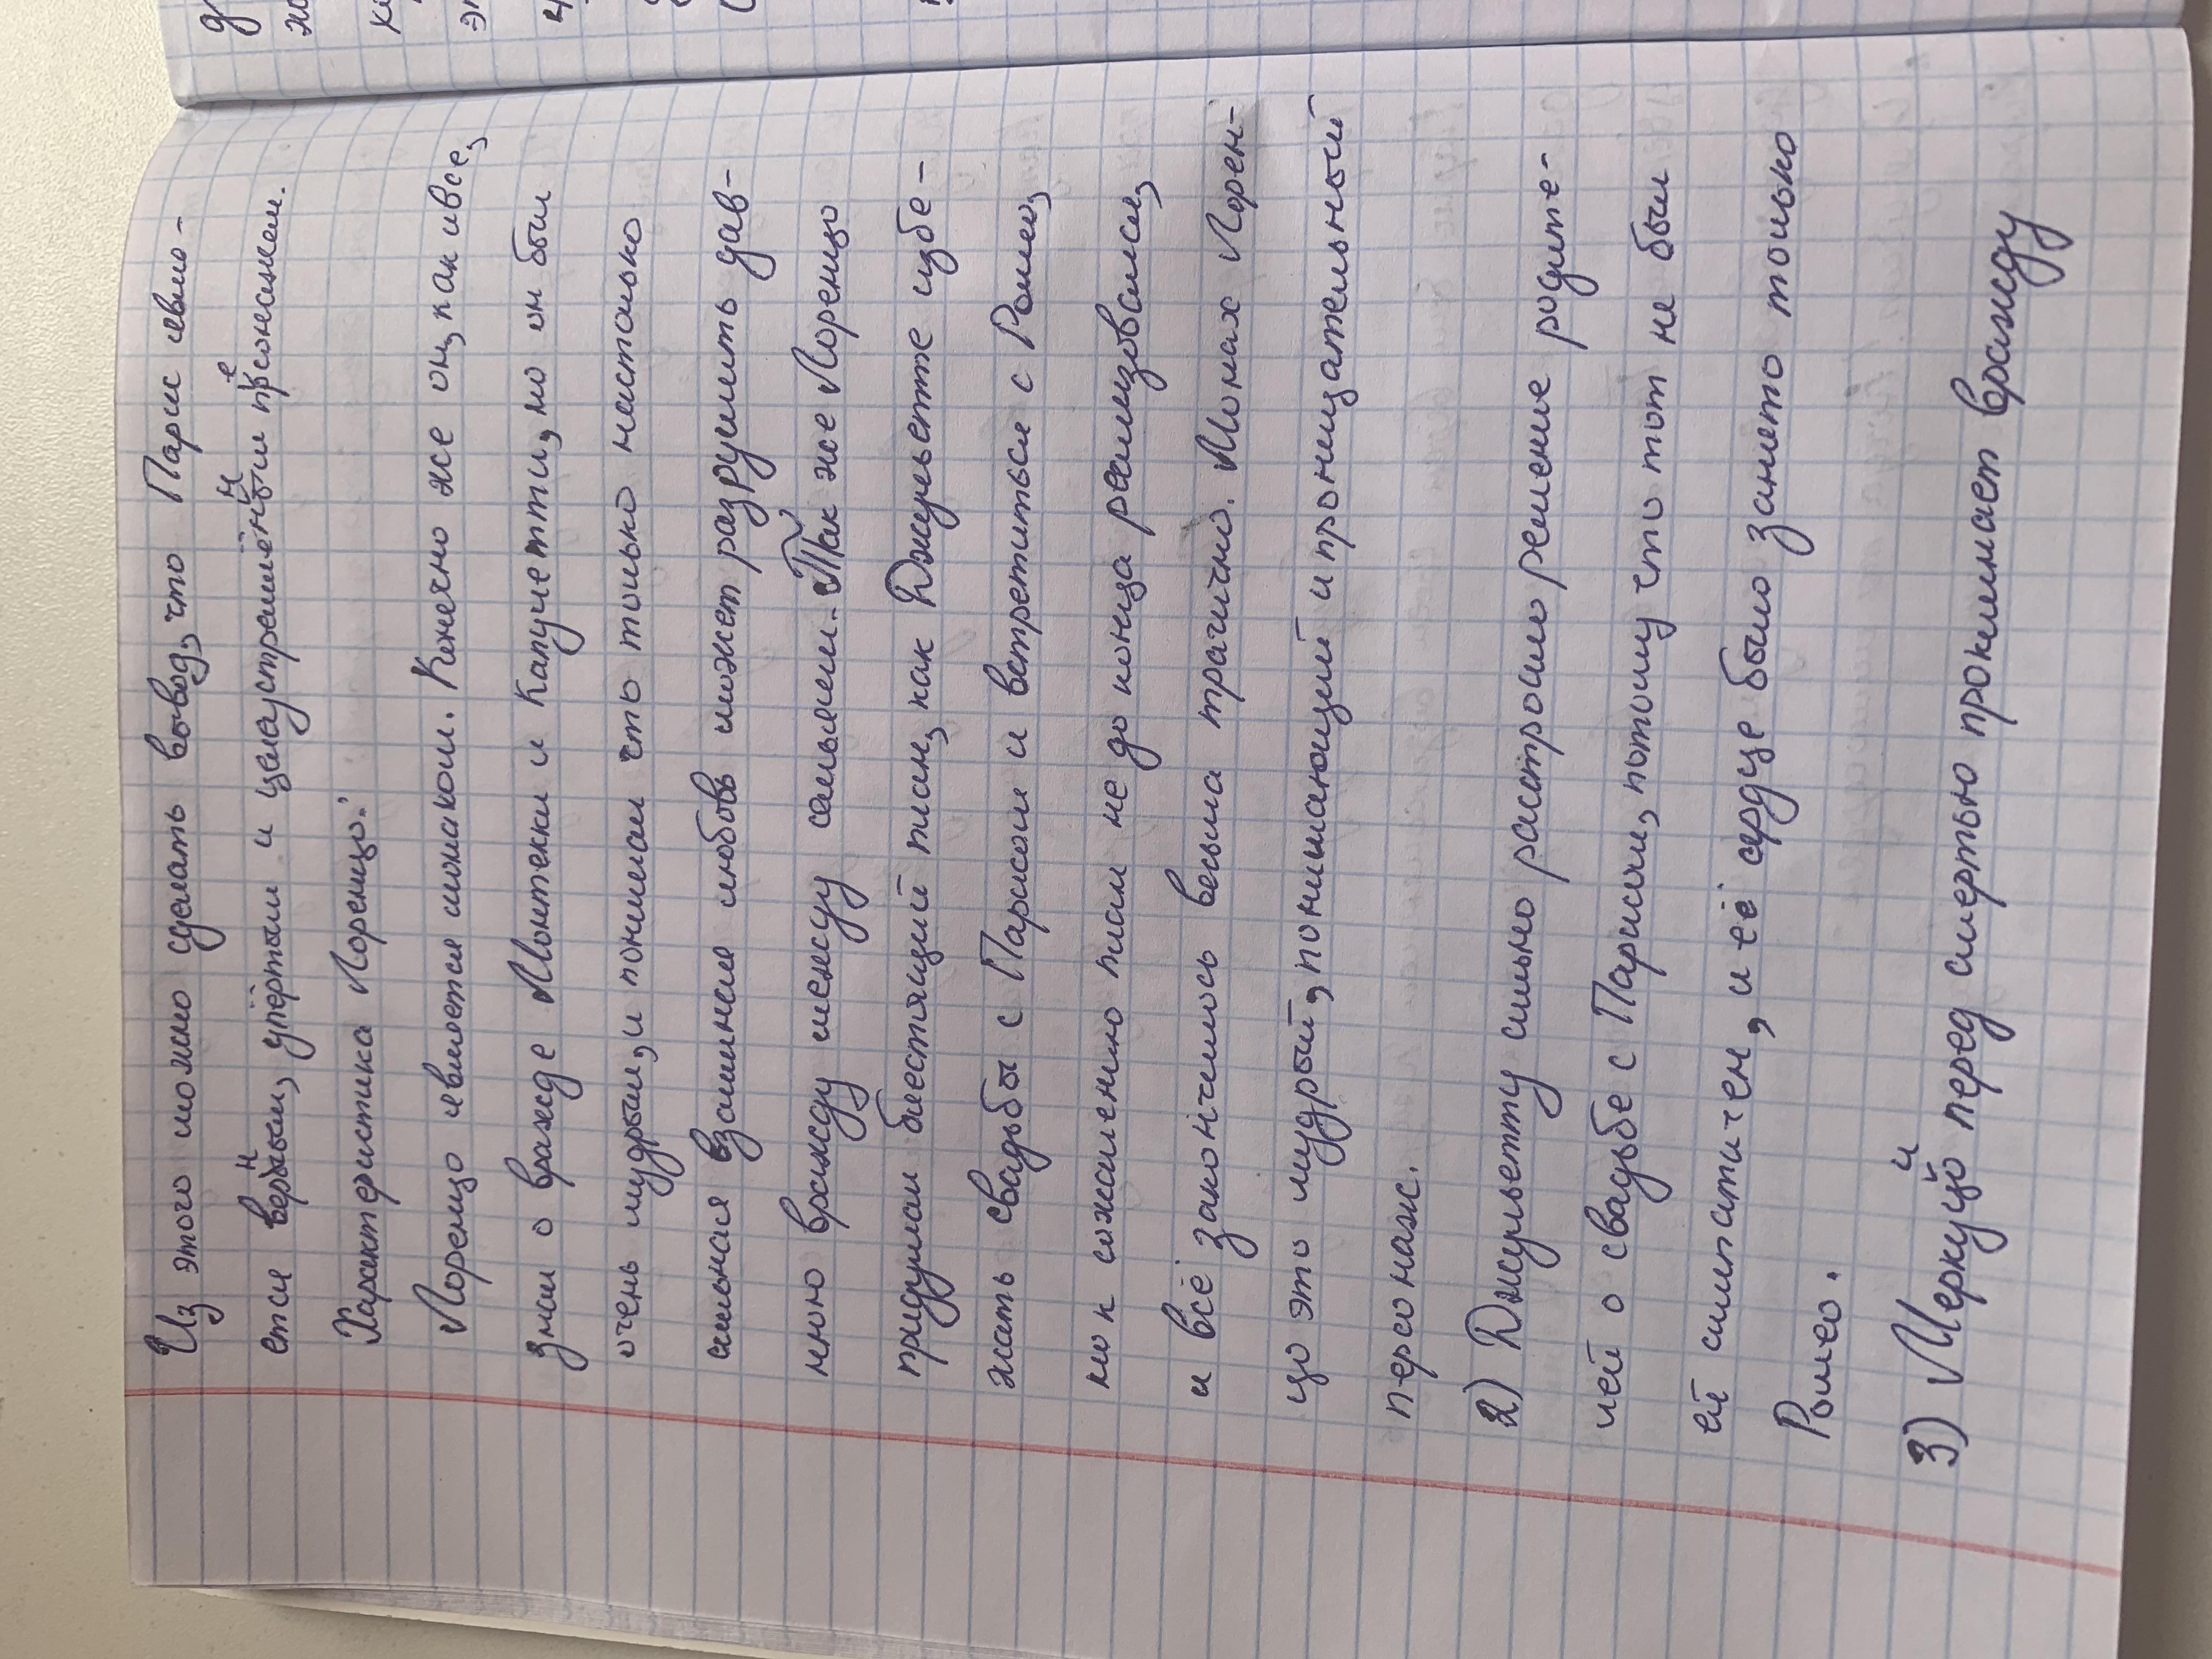 Из этого можно сделать вывод, что Парис явля-
ется верным, упёртым и целаустремлённым персонажем.
Характеристика Лоренцо:
Лоренцо является монахом. Конечно же он, как и все,
знал о вражде Монтекки и Капулетти, но он был
очень мудрым, и понимал что только настолько
сильная взаимная любовь может разрушить дав-
нюю вражду между семьями. Так же Лоренцо
придумал блестящий план, как Джульетте избе-
жать свадьбы с Парисом и встретиться с Ромео,
но к сожалению план не до конца реализовался,
и всё закончилось весьма трагично. Монах Лорен-
цо это мудрый, понимающий и проницательный
персонаж.
2) Джульетту сильно растроило решение родите-
лей о свадьбе с Парисом, потому что тот не был
ей симпатичен, и её сердце было занято только
Ромео.
3) Меркуцио перед смертью проклинает вражду